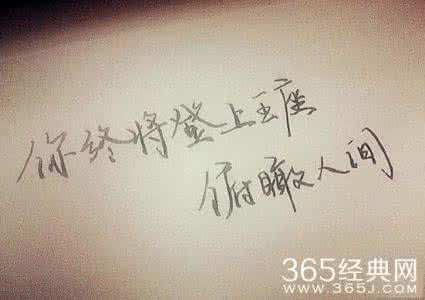 你终将登上王座
俯瞰人间
365经典网
www.365j.com